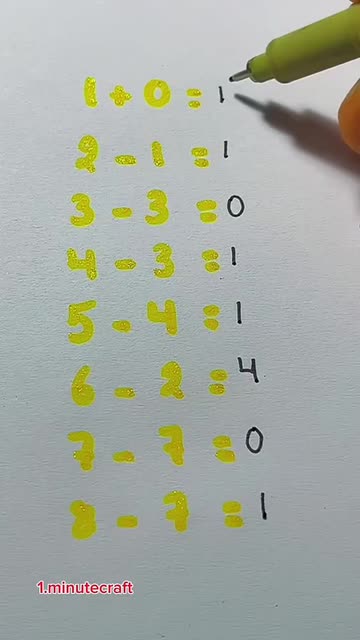 1 + 0 = 1
2 - 1 = 1
3 - 3 = 0
4 - 3 = 1
5 - 4 = 1
6 - 2 = 4
7 - 7 = 0
8 - 7 = 1
1.minutecraft